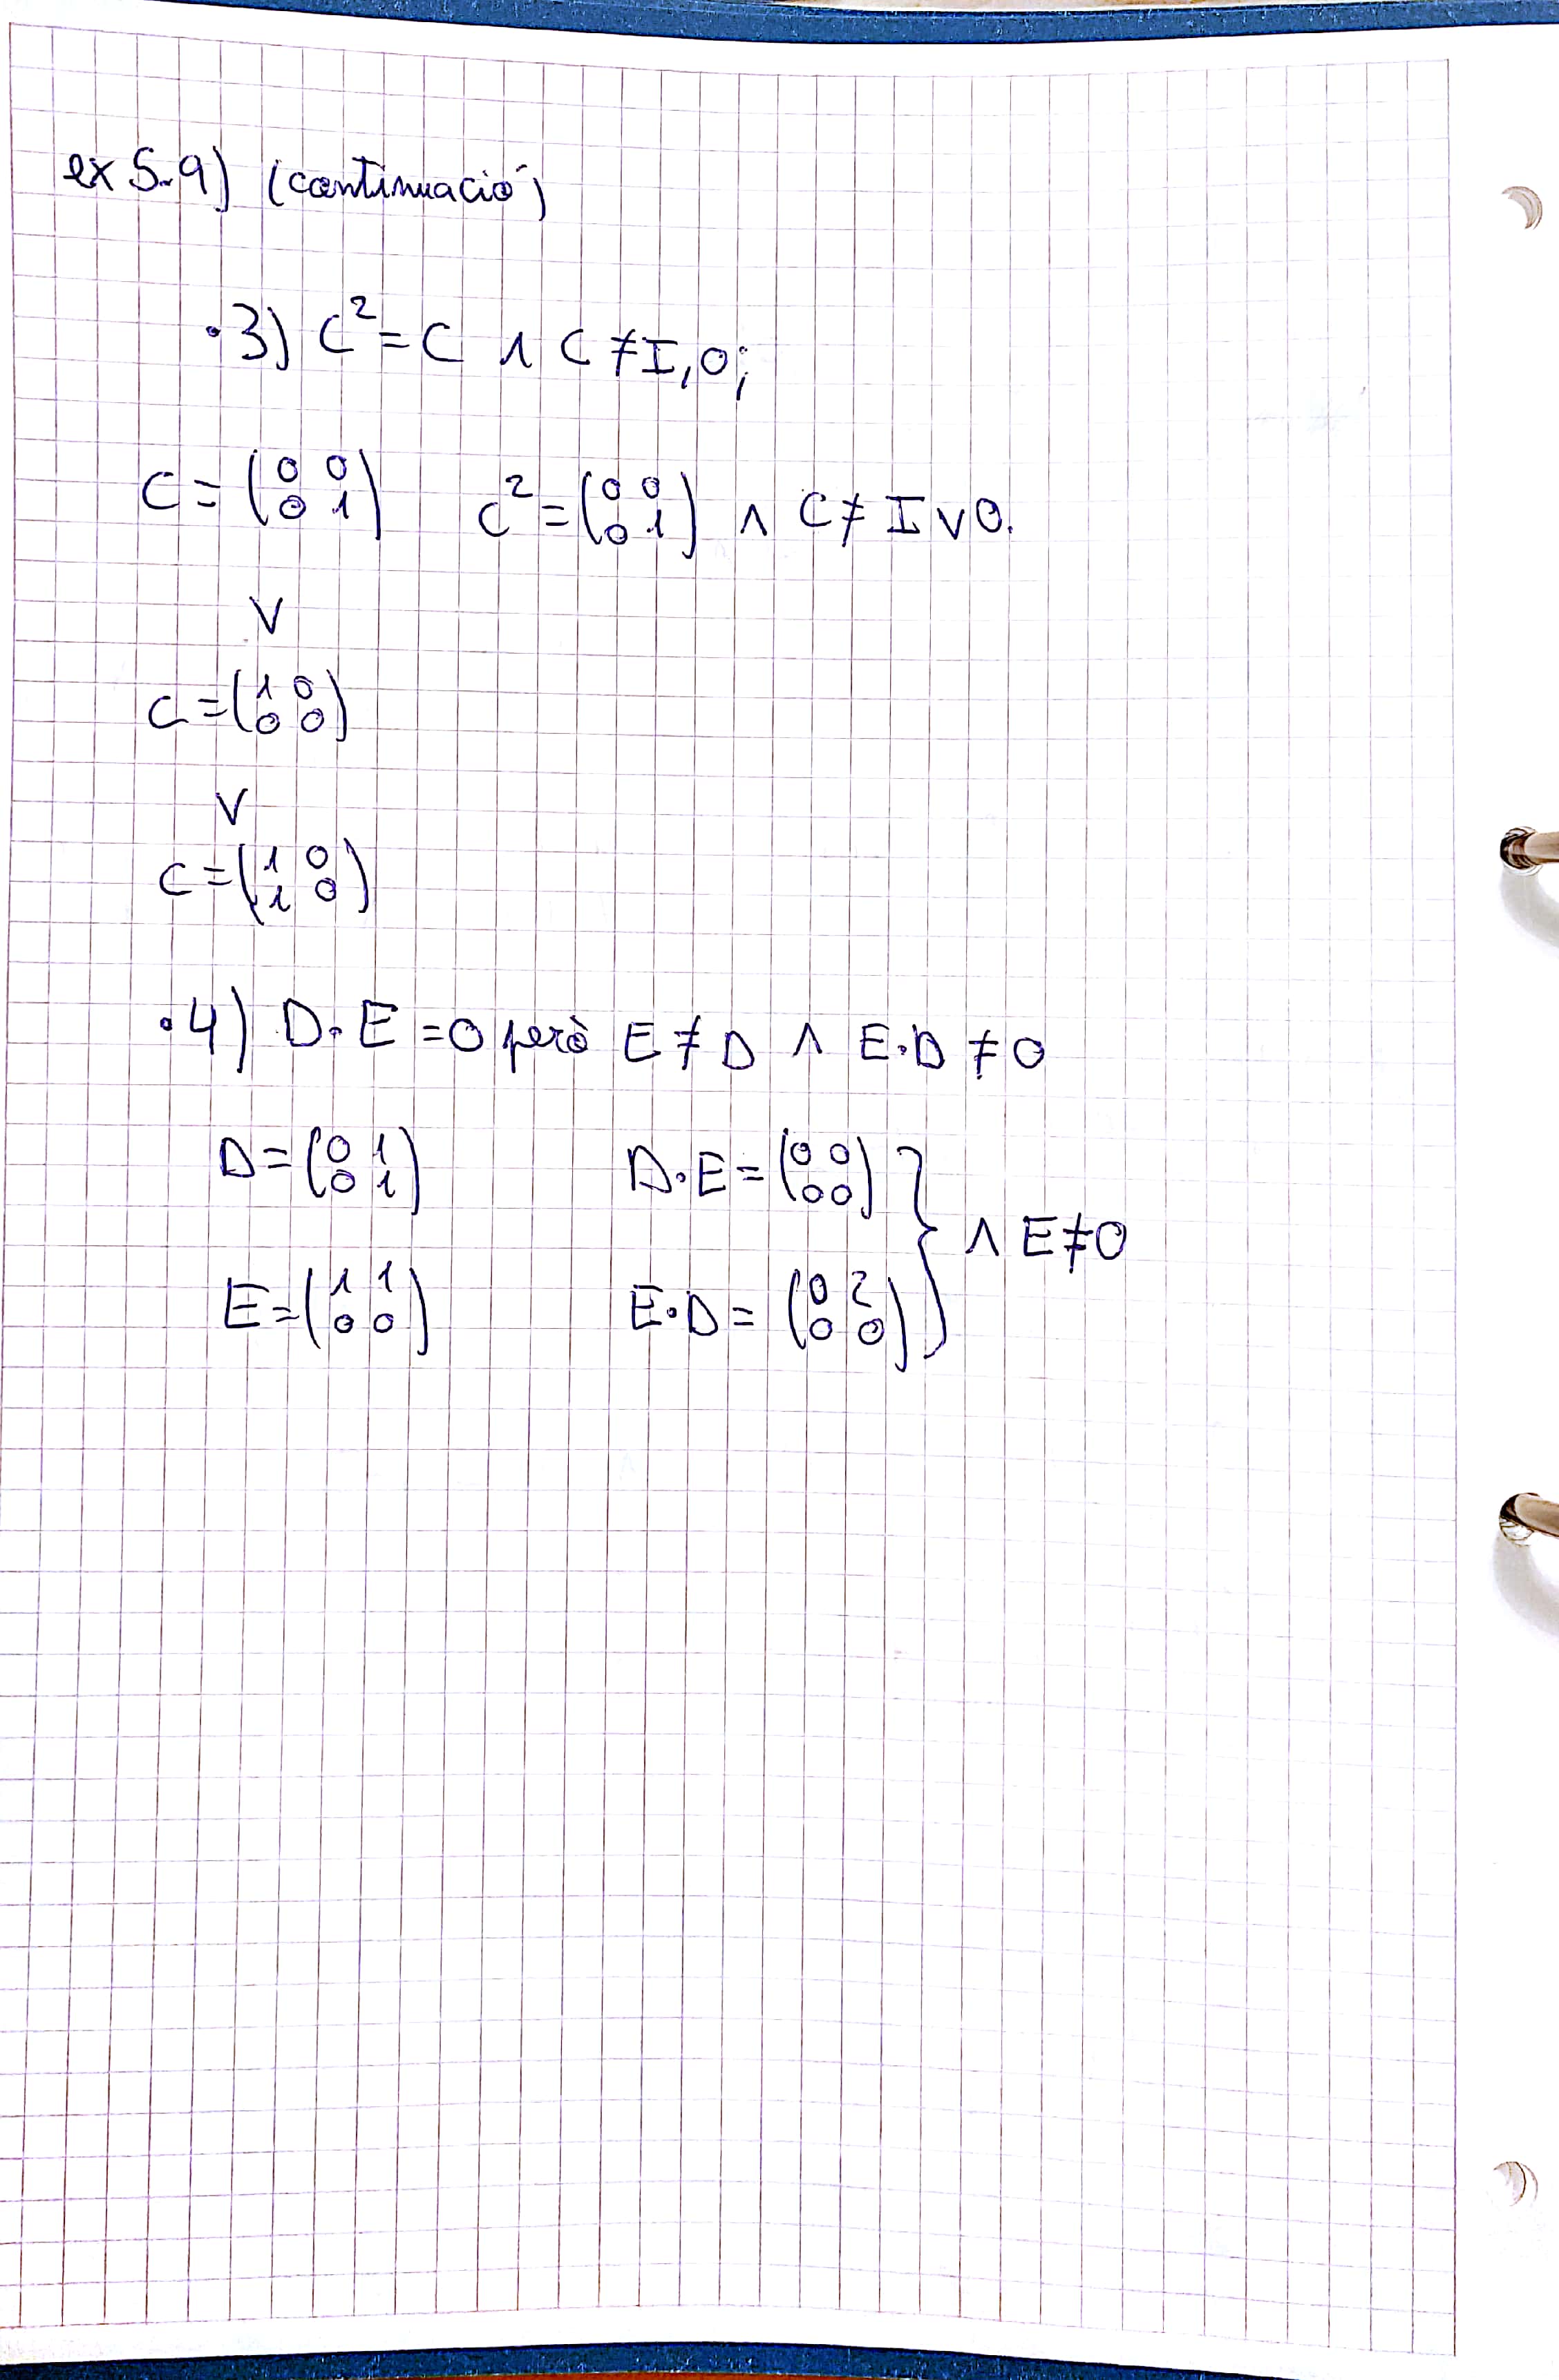 ex 5.9) (continuació)
·3) C² = C ∧ C ≠ I, 0;
C = (0 0 / 0 1)  C² = (0 0 / 0 1) ∧ C ≠ I ∨ 0.
∨
C = (1 0 / 0 0)
∨
C = (1 0 / 1 0)
·4) D·E = 0 però E ≠ D ∧ E·D ≠ 0
D = (0 1 / 0 1)  D·E = (0 0 / 0 0) } ∧ E ≠ 0
E = (1 1 / 0 0)  E·D = (0 2 / 0 0)